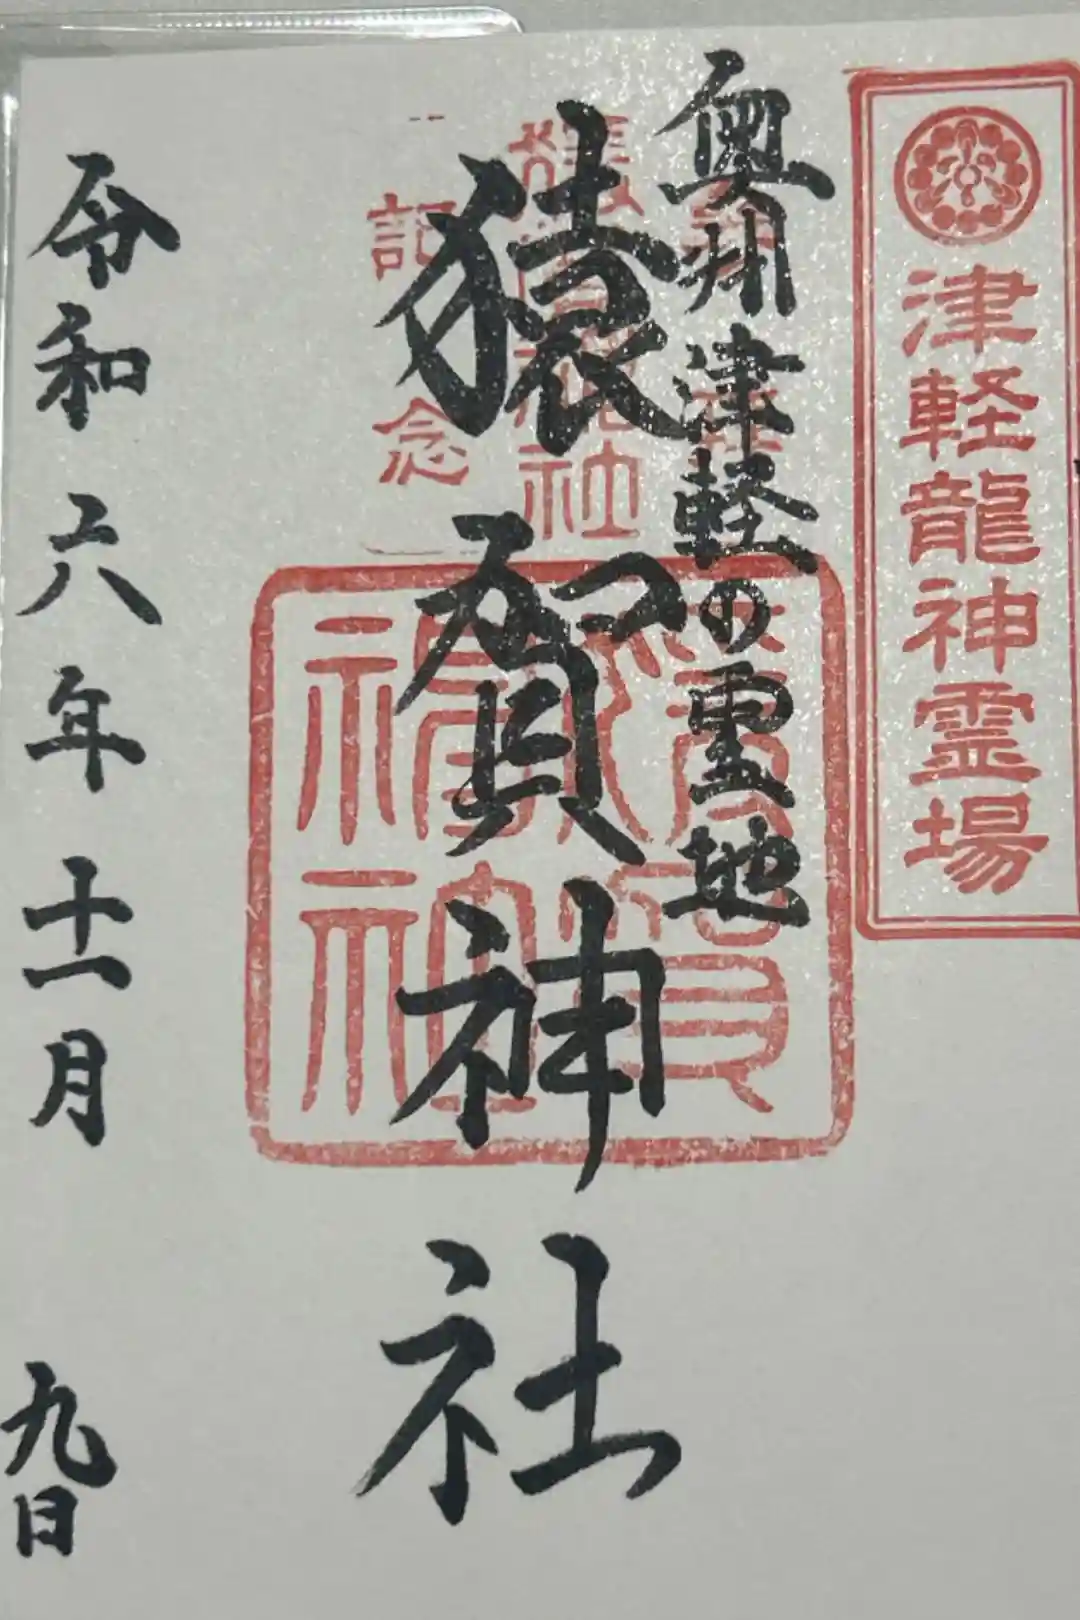 津軽龍神霊場
奥州津軽の霊地
猿賀神社
猿賀神社
記念
令和六年十一月九日